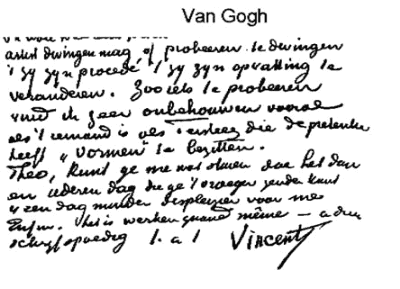 Van Gogh
artist dwingen mag, of probeeren te dwingen
't zy zyn procédé 't zy zyn opvatting te
veranderen. Zoo iets te probeeren
vind ik zeer onbehouwen vooral
als iemand is als Tersteeg die de pretentie
heeft „vormen" te bezitten.
Theo, kunt ge me wat sturen doe het dan
en iederen dag die ge 't vroeger zenden kunt
is een dag minder voor me
werken quand même – adieu
schryf spoedig t. à t. Vincent